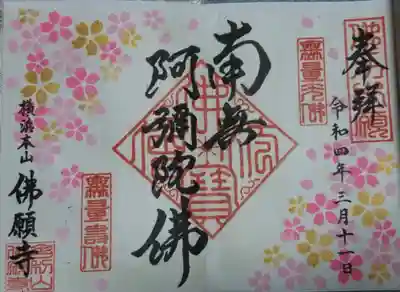 奉拝
令和四年三月十一日
無量光佛
南無
阿彌陀佛
無量壽佛
横浜本山
佛願寺